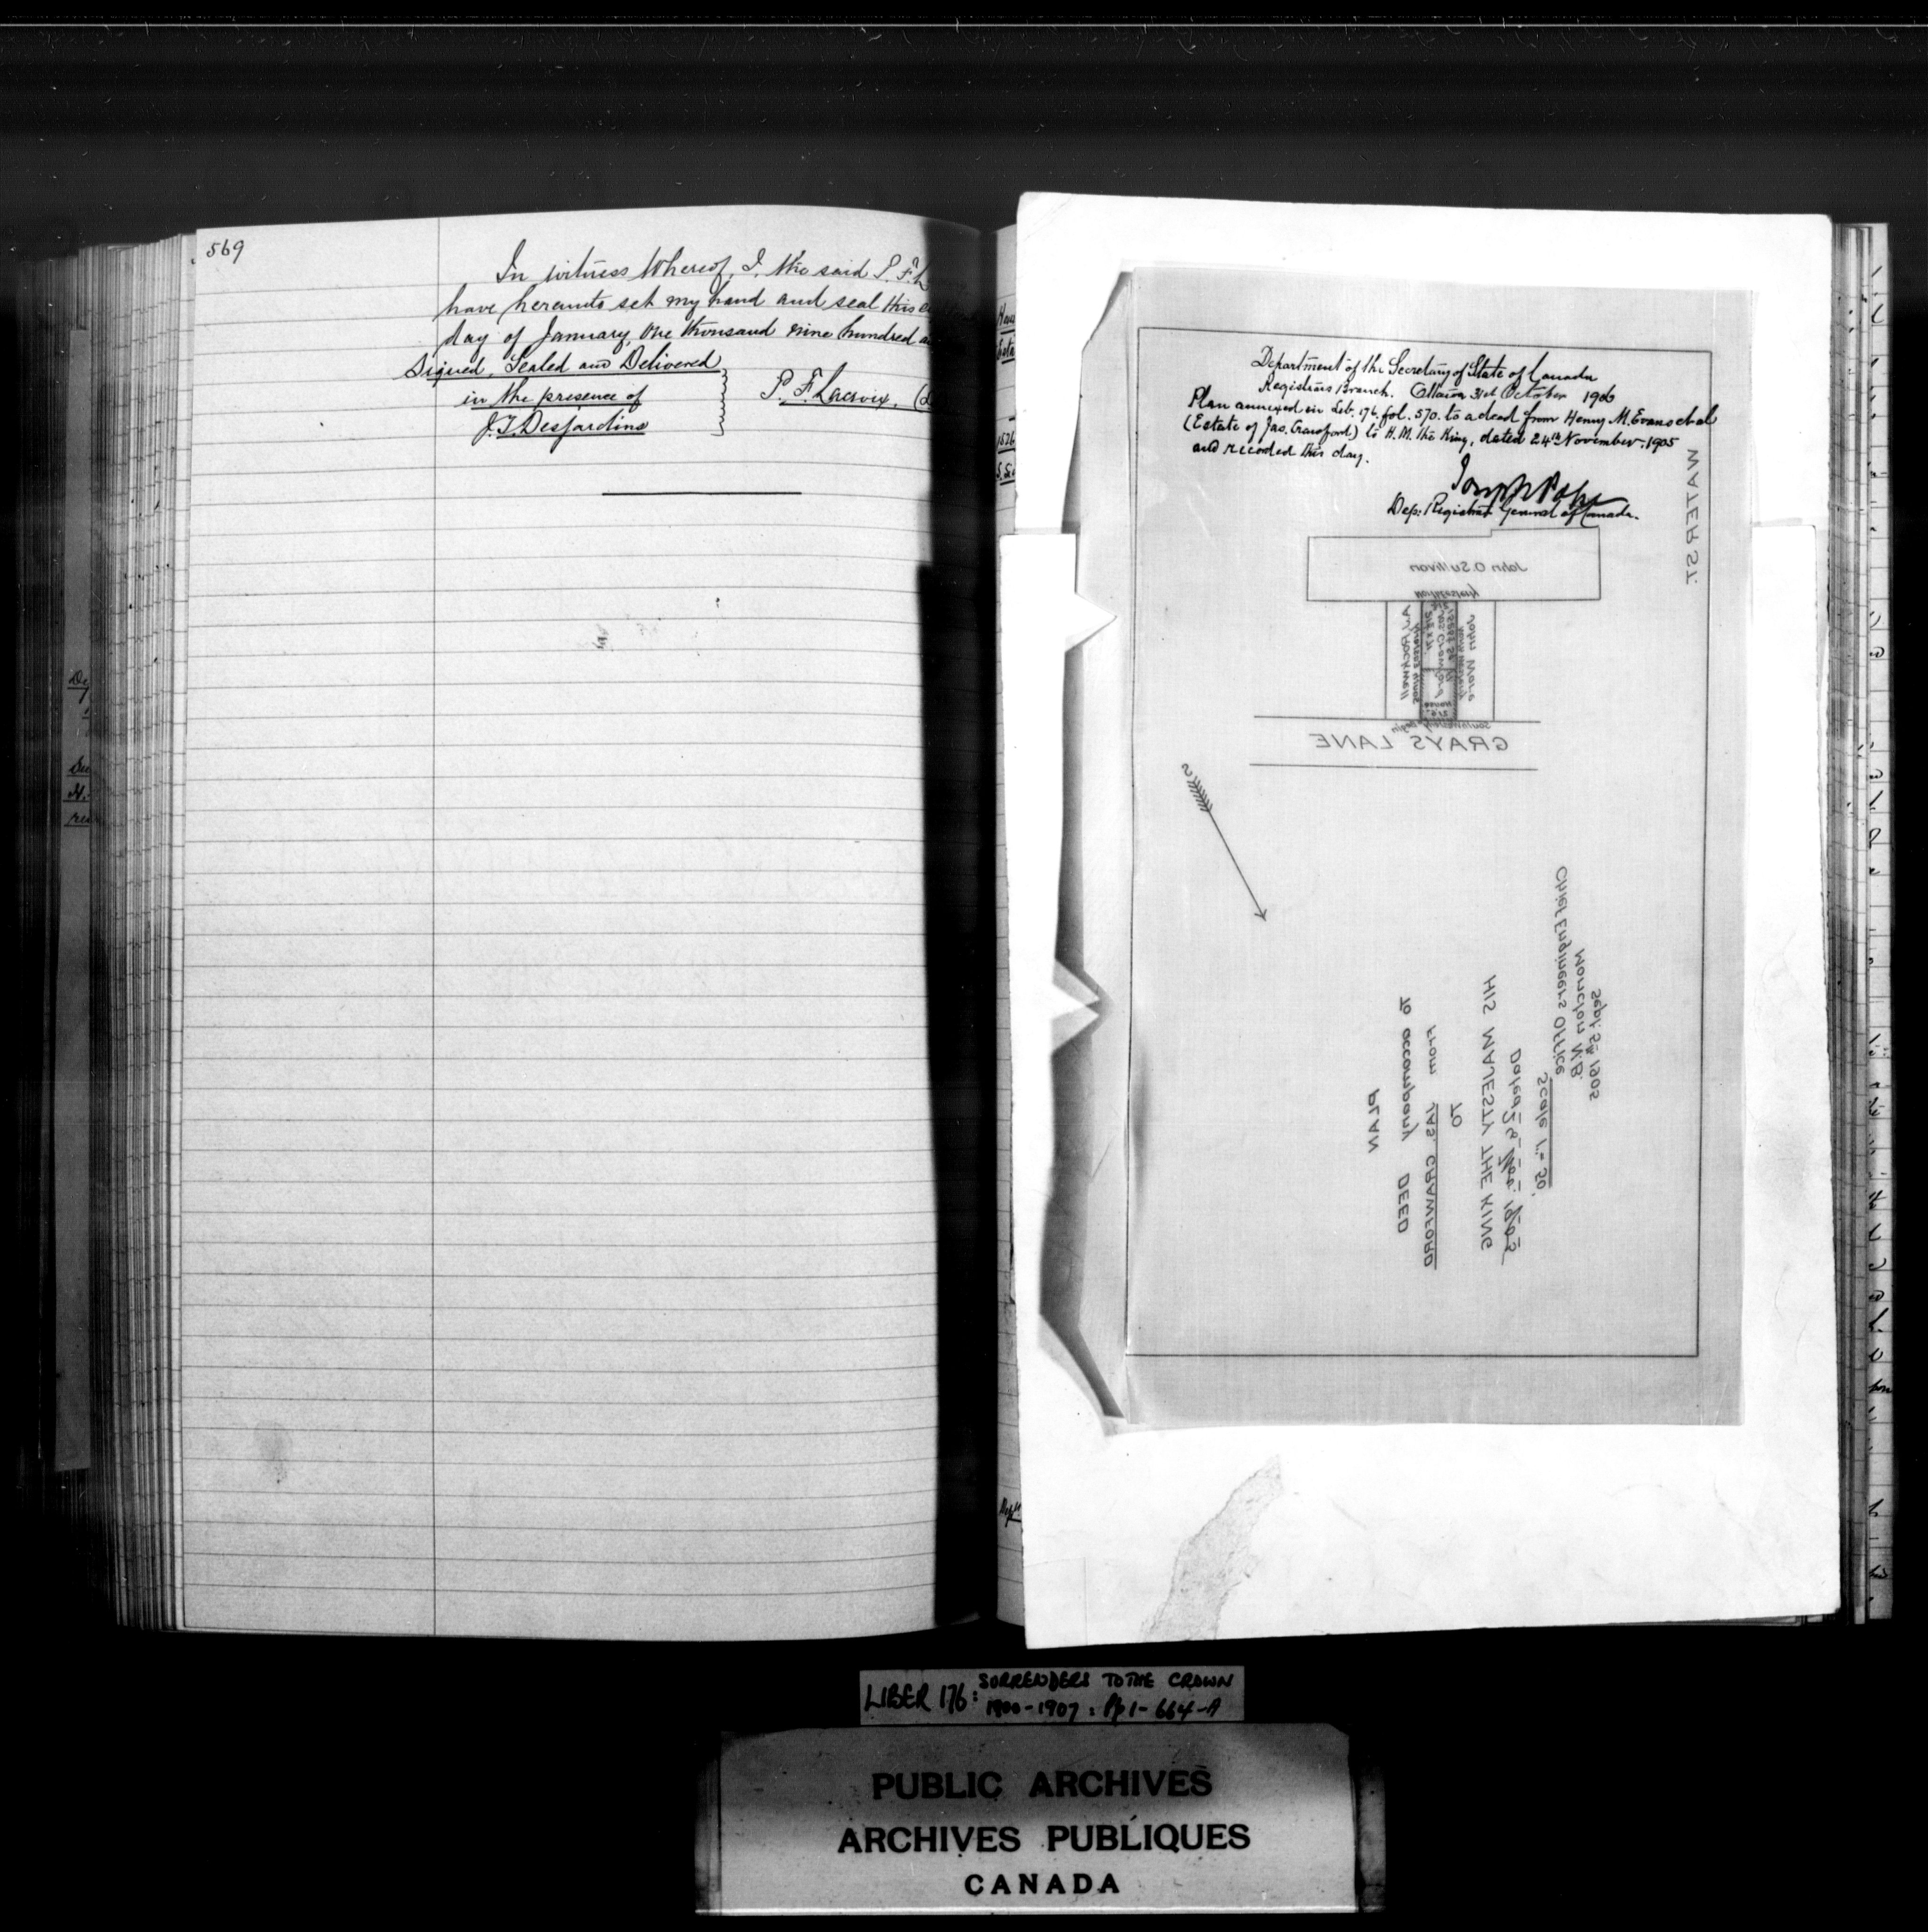 569
In witness Whereof, I, the said P. F.
have hereunto set my hand and seal this
day of January, One thousand nine hundred
Signed, Sealed and Delivered
in the presence of
J. T. Desjardins
P. F. Lacroix.
Department of the Secretary of State of Canada
Registrars Branch. Ottawa 31st October 1906
Plan annexed in Lib. 176. fol. 570. to a deed from Henry M. Evans et al
(Estate of Jas. Crawford) to H. M. the King, dated 24th November. 1905
and recorded this day.
Joseph Pope
Dep: Registrar General of Canada.
WATER ST.
John O. Sullivan
Northeasterly
A. J. Rockwell
South easterly
Jas Crawford
John Ward
House
Southwesterly
GRAYS LANE
S
PLAN
To accompany DEED
From JAS. CRAWFORD
TO
HIS MAJESTY THE KING
Dated 1905
Scale 1"=50'
Chief Engineers Office
Moncton N.B.
Sept. 5th 1905
LIBER 176: SURRENDERS TO THE CROWN
1900-1907: Pp 1-664-A
PUBLIC ARCHIVES
ARCHIVES PUBLIQUES
CANADA